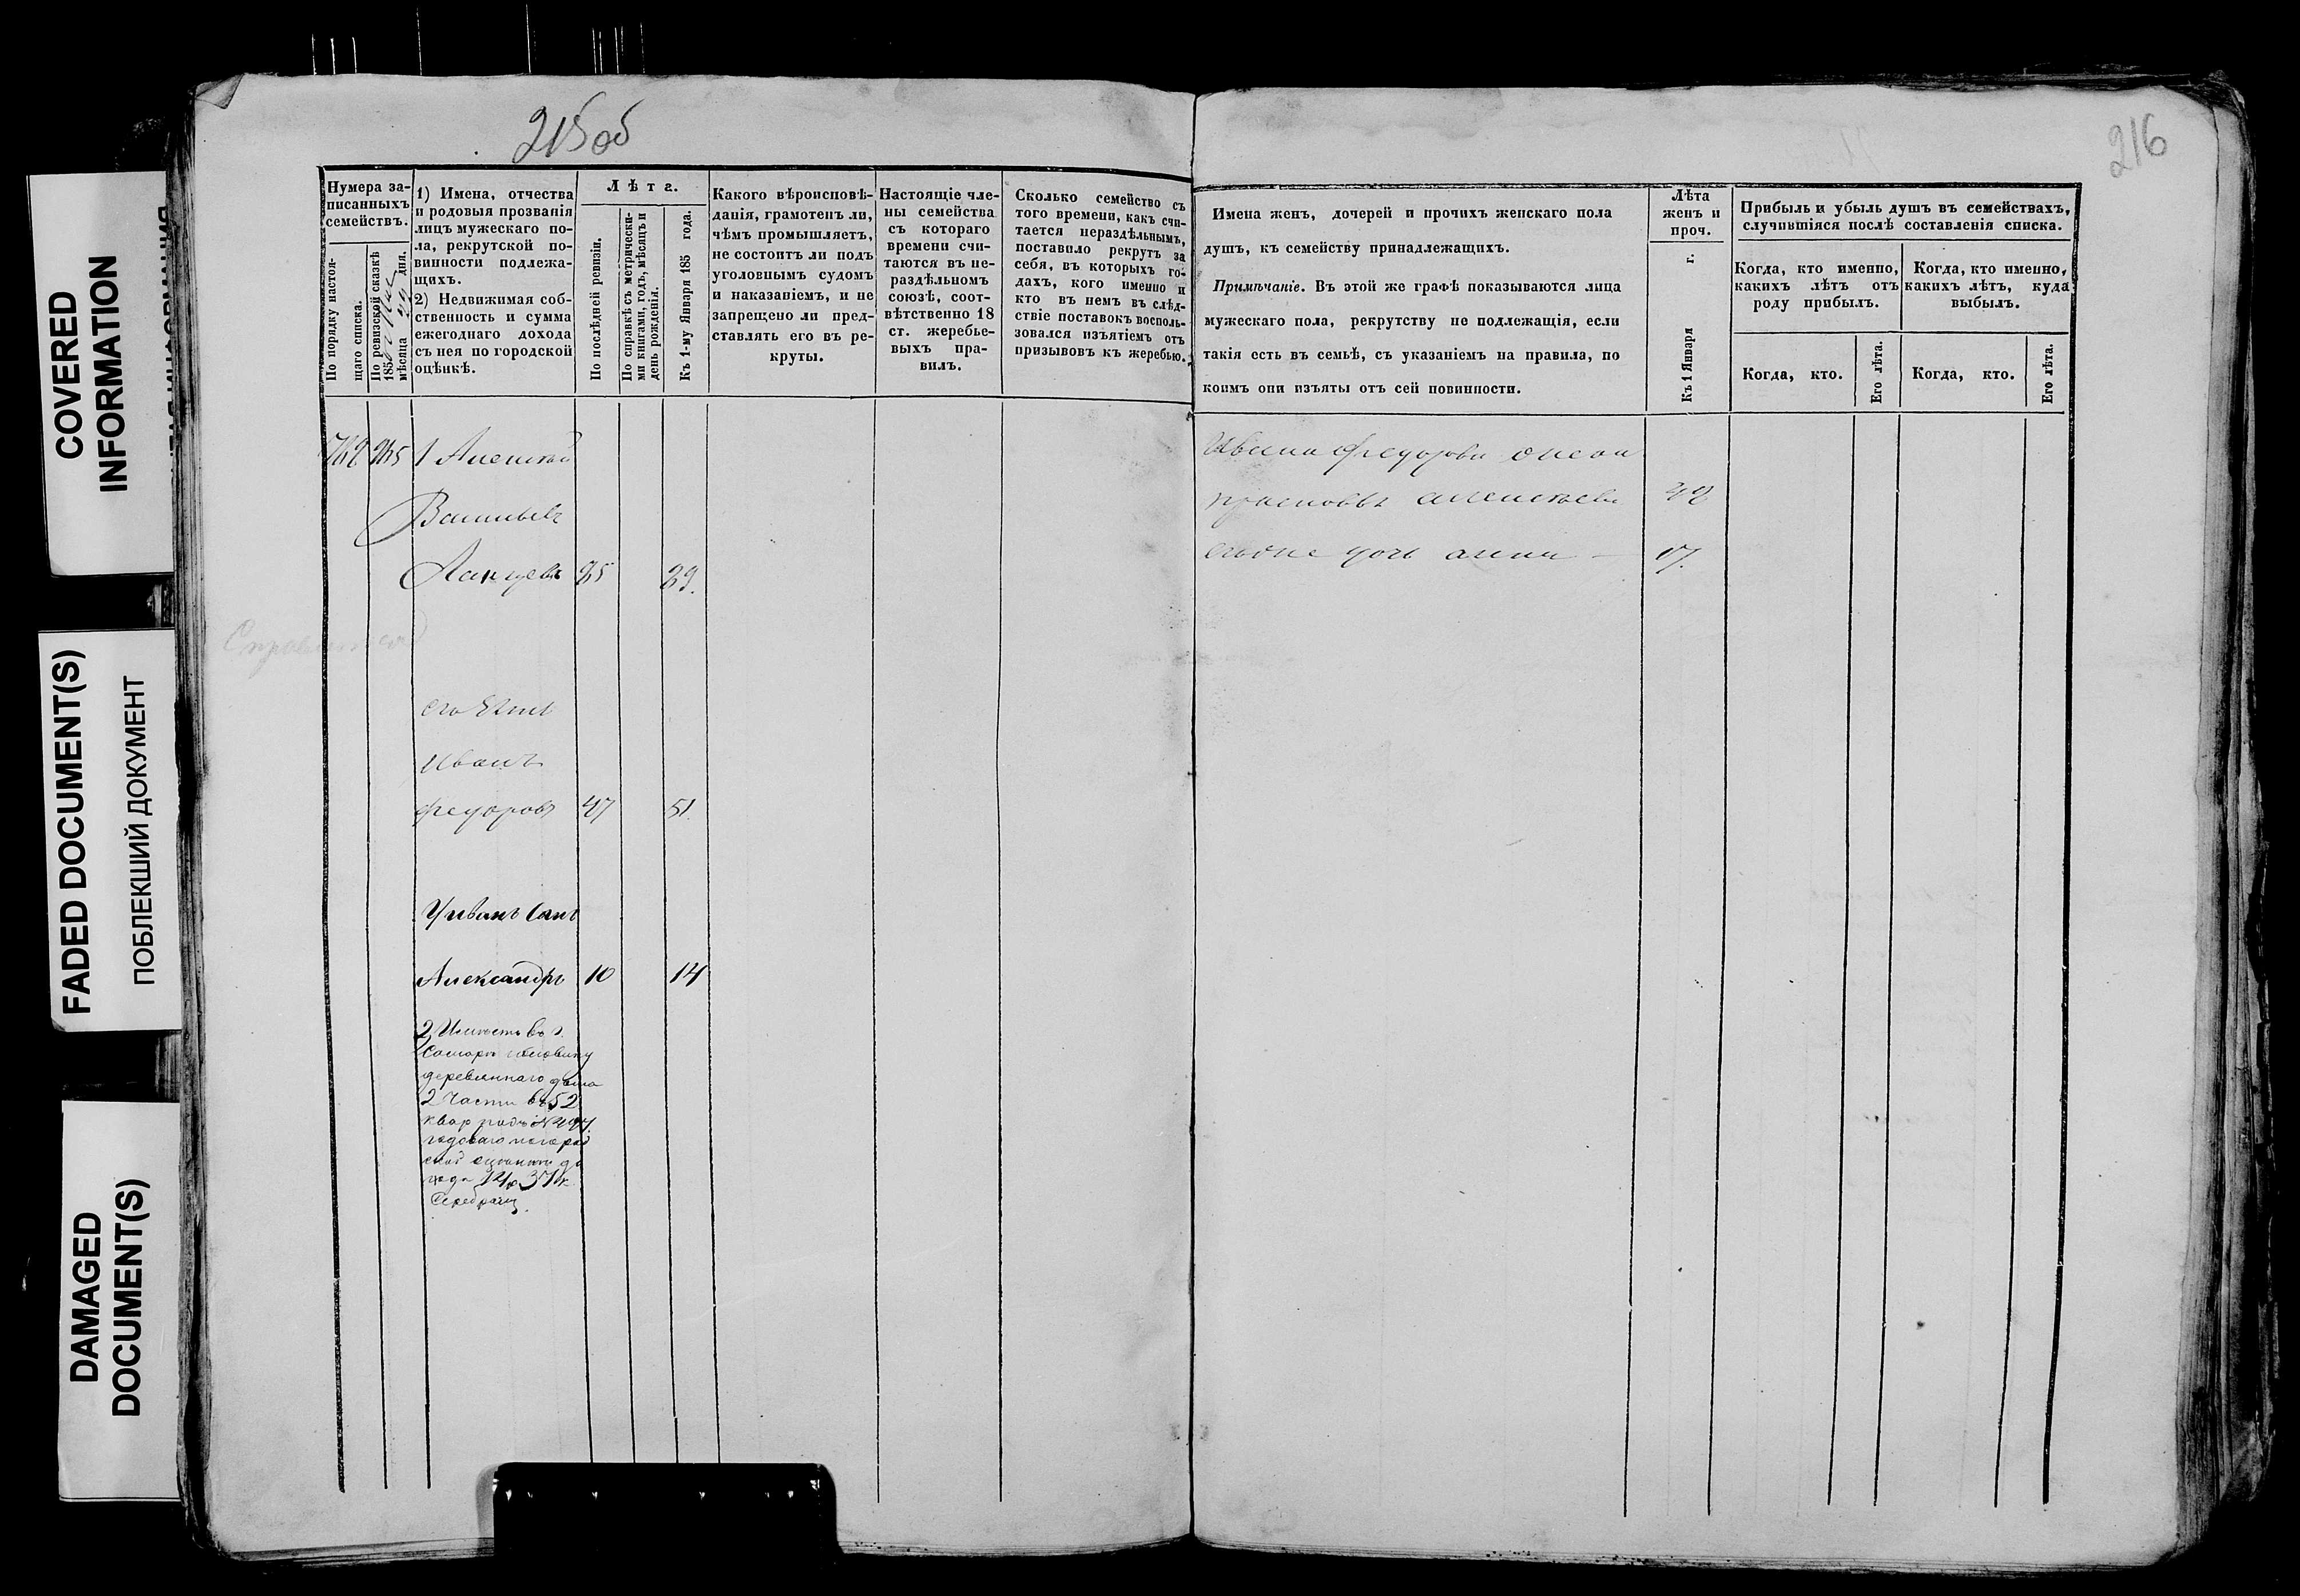 COVERED
INFORMATION
FADED DOCUMENT(S)
ПОБЛЕКШИЙ ДОКУМЕНТ
DAMAGED
DOCUMENT(S)
215об
216
Нумера за-
писанныхъ
семействъ.
По порядку настоя-
щаго списка.
По ревизской сказкѣ
185
мѣсяца дня.
1) Имена, отчества
и родовыя прозванія
лицъ мужескаго по-
ла, рекрутской по-
винности подлежа-
щихъ.
2) Недвижимая соб-
ственность и сумма
ежегоднаго дохода
съ нея по городской
оцѣнкѣ.
Лѣта.
По послѣдней ревизіи.
По справкѣ съ метрически-
ми книгами, годъ, мѣсяцъ и
день рожденія.
Къ 1-му Января 185 года.
Какого вѣроисповѣ-
данія, грамотенъ ли,
чѣмъ промышляетъ,
не состоитъ ли подъ
уголовнымъ судомъ
и наказаніемъ, и не
запрещено ли пред-
ставлять его въ ре-
круты.
Настоящіе чле-
ны семейства
съ котораго
времени счи-
таются въ не-
раздѣльномъ
союзѣ, соот-
вѣтственно 18
ст. жеребье-
выхъ пра-
вилъ.
Сколько семейство съ
того времени, какъ счи-
тается нераздѣльнымъ,
поставило рекрутъ за
себя, въ которыхъ го-
дахъ, кого именно и
кто въ немъ въ слѣд-
ствіе поставокъ восполь-
зовался изъятіемъ отъ
призывовъ къ жеребью.
Имена женъ, дочерей и прочихъ женскаго пола
душъ, къ семейству принадлежащихъ.
Примѣчаніе. Въ этой же графѣ показываются лица
мужескаго пола, рекрутству не подлежащія, если
такія есть въ семьѣ, съ указаніемъ на правила, по
коимъ они изъяты отъ сей повинности.
Лѣта
женъ и
проч.
Къ 1 Января г.
Прибыль и убыль душъ въ семействахъ,
случившіяся послѣ составленія списка.
Когда, кто именно,
какихъ лѣтъ отъ
роду прибылъ.
Когда, кто именно,
какихъ лѣтъ, куда
выбылъ.
Когда, кто.
Его лѣта.
Когда, кто.
Его лѣта.
1 Алексѣй
Васильевъ
25 29.
его Зять
Иванъ
Федоровъ 47 51.
У Ивана Сынъ
Александръ 10 14
2 Имѣетъ въ г.
Самарѣ половину
деревяннаго дома
2 Части въ 52
квар подъ №
годоваго по город
ской оцѣнки до
хода 14 р 37 к
Серебромъ.
Ивана Федорова жена
алексѣева 42
дочь анна — 17.